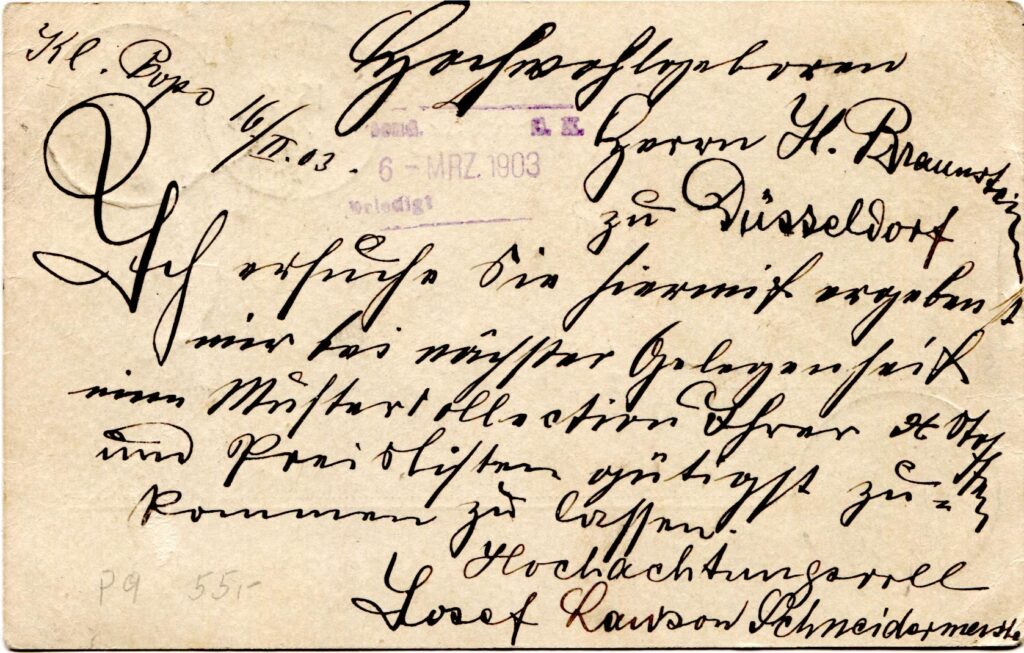 Kl. Popo
16/II.03.
Hochwohlgeboren
Herrn H. Braunstein
zu Düsseldorf
6 - MRZ. 1903
erledigt
Ich ersuche Sie hiermit ergebenst
mir bei nächster Gelegenheit
eine Mustercollection Ihrer
und Preislisten gütigst zu-
kommen zu lassen.
Hochachtungsvoll
Josef Lawson Schneidermeiste
P9 55,-